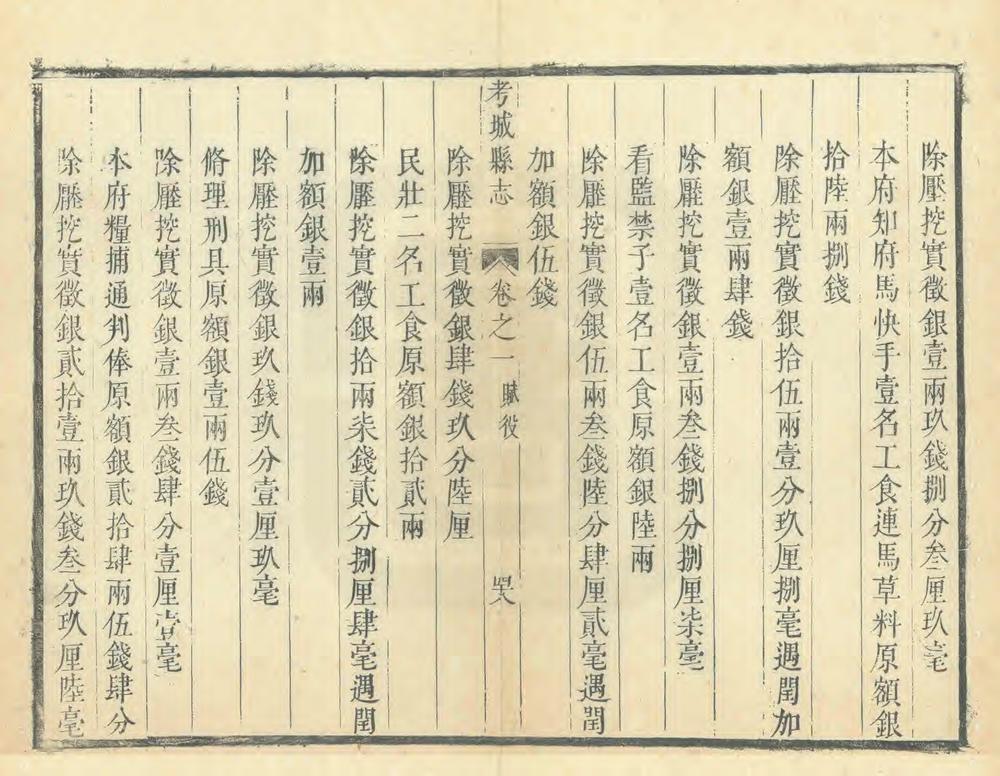 除壓挖實徵銀壹兩玖錢捌分叁厘玖毫
本府知府馬快手壹名工食連馬草料原額銀
拾陸兩捌錢
除壓挖實徵銀拾伍兩壹分玖厘捌毫遇閏加
額銀壹兩肆錢
除壓挖實徵銀壹兩叁錢捌分捌厘柒毫
看監禁子壹名工食原額銀陸兩
除壓挖實徵銀伍兩叁錢陸分肆厘貳毫遇閏
加額銀伍錢
考城縣志 卷之一 賦役 四八
除壓挖實徵銀肆錢玖分陸厘
民壯二名工食原額銀拾貳兩
除壓挖實徵銀拾兩柒錢貳分捌厘肆毫遇閏
加額銀壹兩
除壓挖實徵銀玖錢玖分壹厘玖毫
脩理刑具原額銀壹兩伍錢
除壓挖實徵銀壹兩叁錢肆分壹厘壹毫
本府糧捕通判俸原額銀貳拾肆兩伍錢肆分
除壓挖實徵銀貳拾壹兩玖錢叁分玖厘陸毫